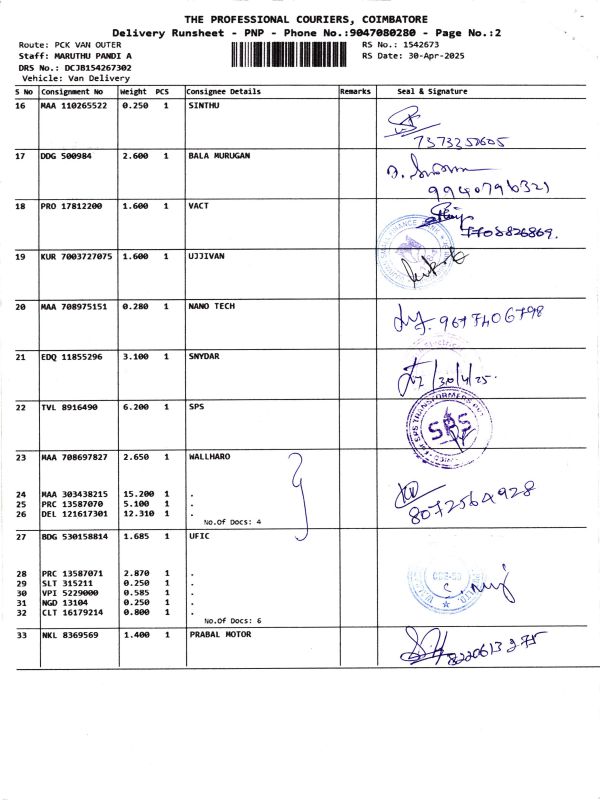 THE PROFESSIONAL COURIERS, COIMBATORE
Delivery Runsheet - PNP - Phone No.:9047080280 - Page No.:2
Route: PCK VAN OUTER
RS No.: 1542673
Staff: MARUTHU PANDI A
RS Date: 30-Apr-2025
DRS No.: DCJB154267302
Vehicle: Van Delivery
S No Consignment No Weight PCS Consignee Details Remarks Seal & Signature
16 MAA 110265522 0.250 1 SINTHU
7373257605
17 DDG 500984 2.600 1 BALA MURUGAN
9940796321
18 PRO 17812200 1.600 1 VACT
7708826869.
19 KUR 7003727075 1.600 1 UJJIVAN
20 MAA 708975151 0.280 1 NANO TECH
9677406798
21 EDQ 11855296 3.100 1 SNYDAR
30/4/25.
22 TVL 8916490 6.200 1 SPS
SPS TRANSFORMERS
SPS
23 MAA 708697827 2.650 1 WALLHARO
24 MAA 303438215 15.200 1 .
25 PRC 13587070 5.100 1 .
26 DEL 121617301 12.310 1 .
8072564928
No.Of Docs: 4
27 BDG 530158814 1.685 1 UFIC
28 PRC 13587071 2.870 1 .
29 SLT 315211 0.250 1 .
30 VPI 5229000 0.585 1 .
31 NGD 13104 0.250 1 .
32 CLT 16179214 0.800 1 .
No.Of Docs: 6
33 NKL 8369569 1.400 1 PRABAL MOTOR
8220613275